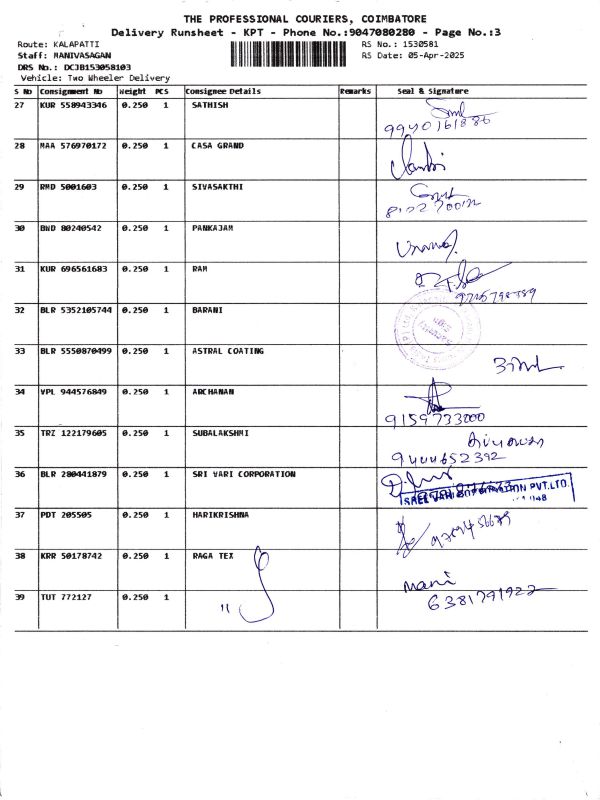 THE PROFESSIONAL COURIERS, COIMBATORE
Delivery Runsheet - KPT - Phone No.:9047080280 - Page No.:3
Route: KALAPATTI RS No.: 1530581
Staff: MANIVASAGAN RS Date: 05-Apr-2025
DRS No.: DCJB153058103
Vehicle: Two Wheeler Delivery
S No Consignment No Weight PCS Consignee Details Remarks Seal & Signature
27 KUR 558943346 0.250 1 SATHISH
9940161886
28 MAA 576970172 0.250 1 CASA GRAND
29 RMD 5001603 0.250 1 SIVASAKTHI
30 BWD 80240542 0.250 1 PANKAJAM
31 KUR 696561683 0.250 1 RAM
32 BLR 5352105744 0.250 1 BARANI
33 BLR 5550870499 0.250 1 ASTRAL COATING
34 VPL 944576849 0.250 1 ARCHANAN
9159733000
35 TRZ 122179605 0.250 1 SUBALAKSHMI
9444652392
36 BLR 280441879 0.250 1 SRI VARI CORPORATION
SREE VARI CORPORATION PVT.LTD.
37 PDT 205505 0.250 1 HARIKRISHNA
38 KRR 50178742 0.250 1 RAGA TEX
Mani
6381791922
39 TUT 772127 0.250 1 "